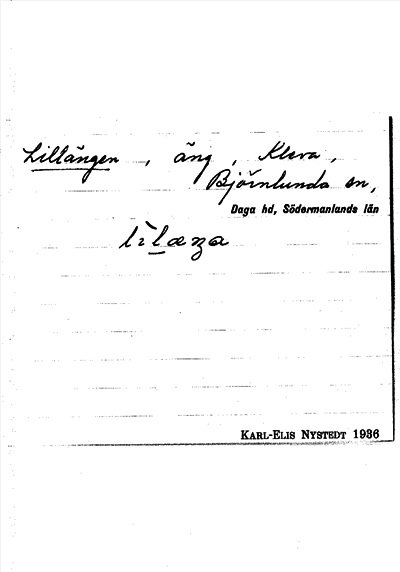 Lillängen, äng, Kleva,
Björnlunda sn,
Daga hd, Södermanlands län
KARL-ELIS NYSTEDT 1936